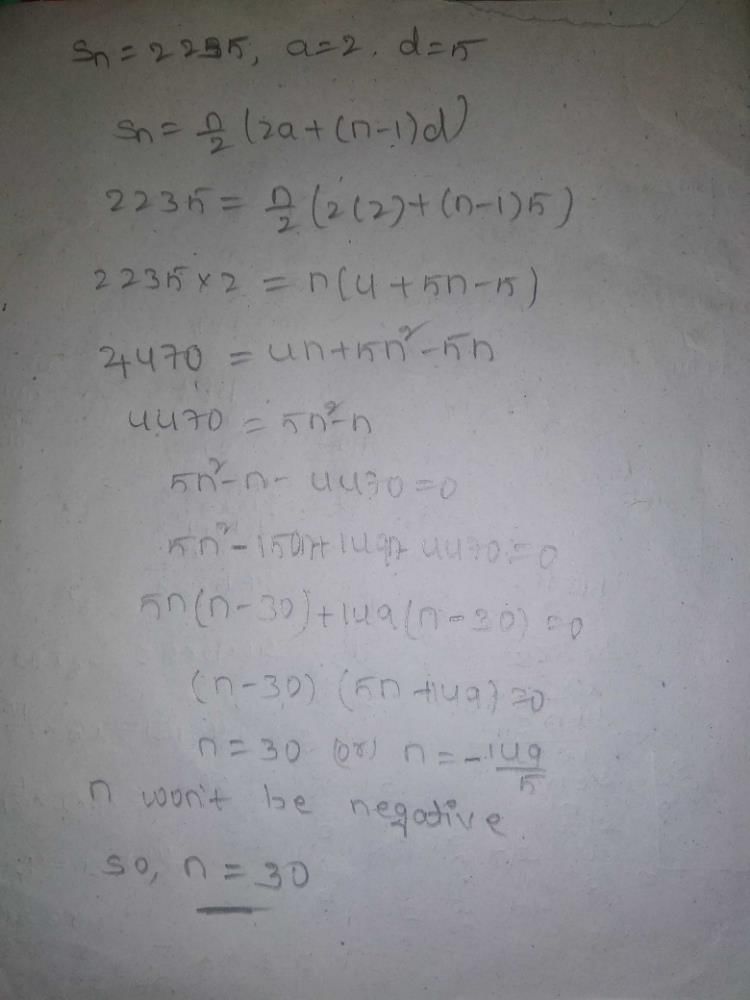 Sn = 2235, a=2. d=5
Sn = n/2 (2a+(n-1)d)
2235 = n/2 (2(2)+(n-1)5)
2235×2 = n(4+5n-5)
4470 = 4n+5n²-5n
4470 = 5n²-n
5n²-n-4470=0
5n²-150n+149n-4470=0
5n(n-30)+149(n-30)=0
(n-30) (5n+149)=0
n=30 (or) n=-149/5
n won't be negative
so, n = 30